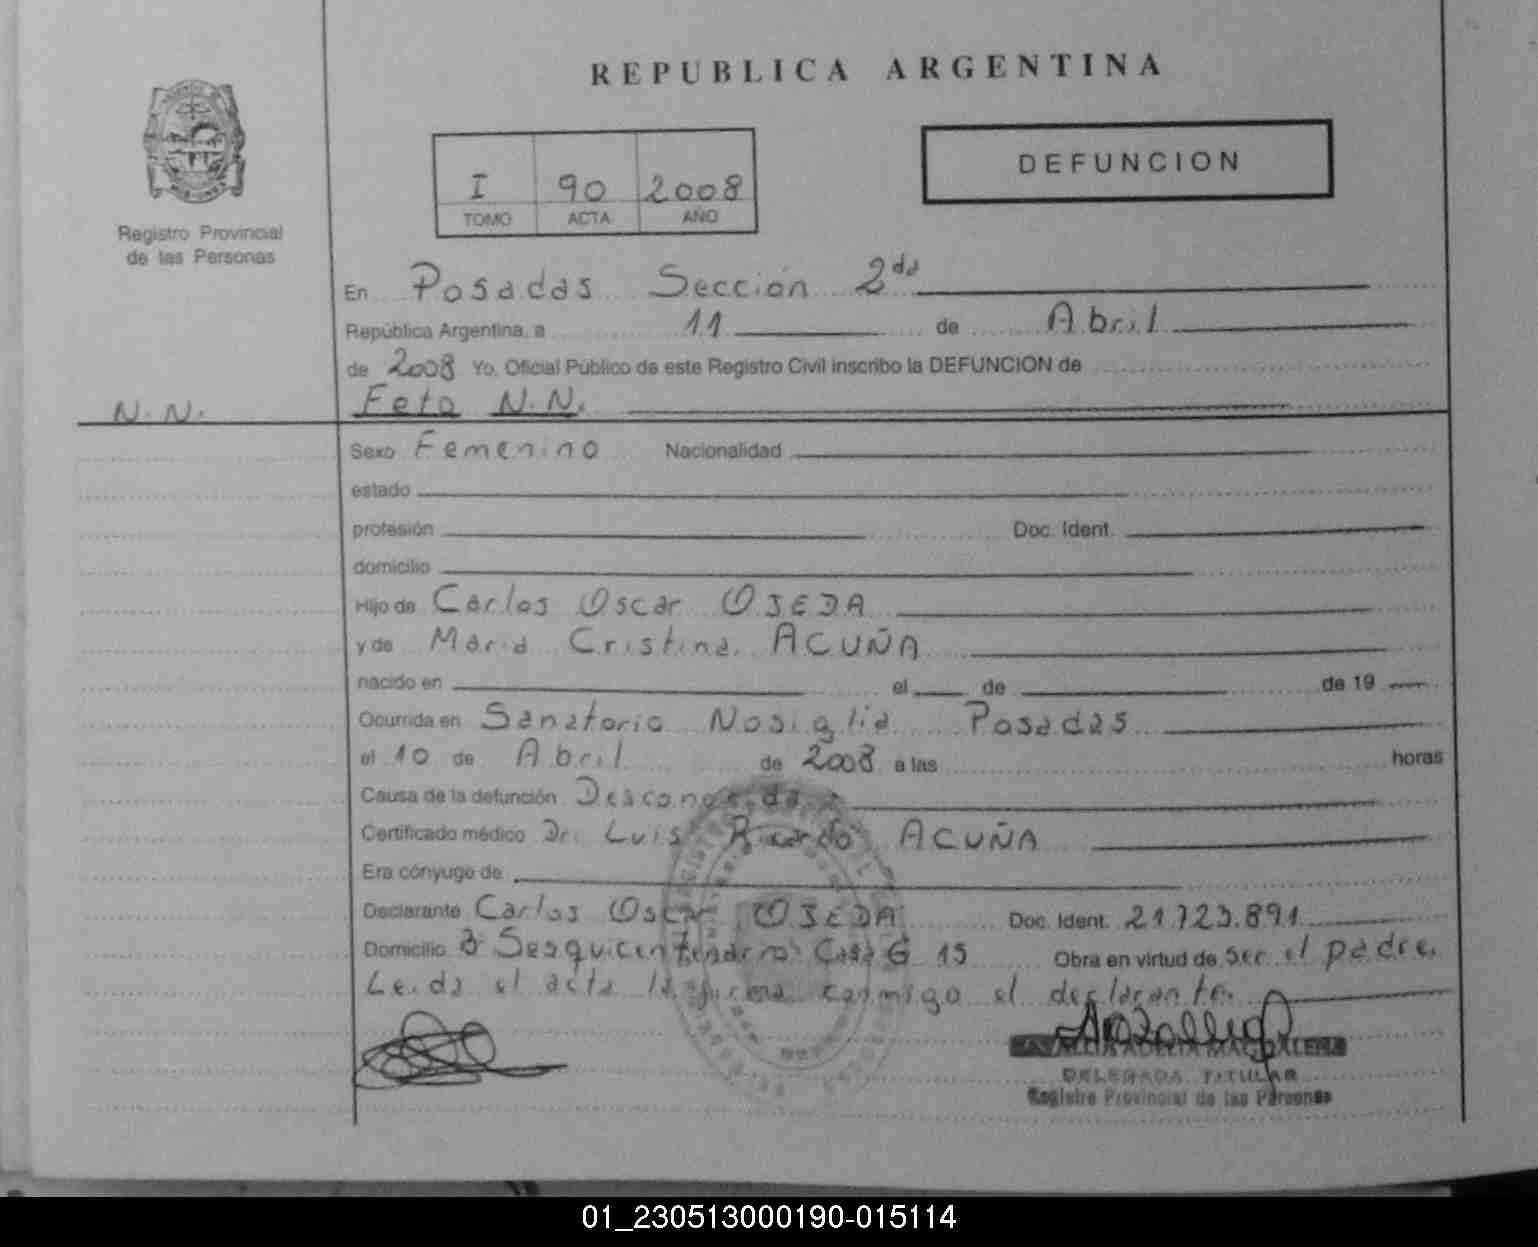 REPUBLICA ARGENTINA
DEFUNCION
I 90 2008
TOMO ACTA AÑO
Registro Provincial
de las Personas
En Posadas Sección 2da
República Argentina, a 11 de Abril
de 2008 Yo, Oficial Público de este Registro Civil inscribo la DEFUNCION de
N.N. Feto N.N.
Sexo Femenino Nacionalidad
estado
profesión Doc. Ident.
domicilio
Hijo de Carlos Oscar OJEDA
y de Maria Cristina ACUÑA
nacido en el de de 19
Ocurrida en Sanatorio Nosiglia Posadas
el 10 de Abril de 2008 a las horas
Causa de la defunción Desconocida
Certificado médico Dr. Luis Ricardo ACUÑA
Era cónyuge de
Declarante Carlos Oscar OJEDA Doc. Ident. 21.723.891
Domicilio Sesquicentenario Casa 15 Obra en virtud de ser el padre.
Leida el acta la firma conmigo el declarante.
ADELIA MAGDALENA
DELEGADA TITULAR
Registro Provincial de las Personas
01_230513000190-015114